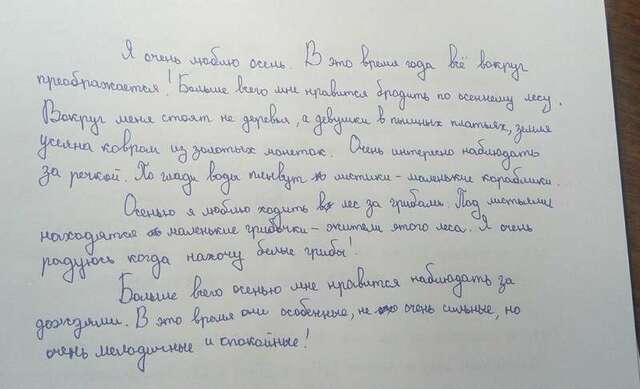 Я очень люблю осень. В это время года всё вокруг
преображается! Больше всего мне нравится бродить по осеннему лесу.
Вокруг меня стоят не деревья, а девушки в пышных платьях, земля
усеяна ковром из золотых монеток. Очень интересно наблюдать
за речкой. По глади воды плывут листики - маленькие кораблики.
Осенью я люблю ходить в лес за грибами. Под листьями
находятся маленькие грибочки - жители этого леса. Я очень
радуюсь когда нахочу белые грибы!
Больше всего осенью мне нравится наблюдать за
дождями. В это время они особенные, не очень сильные, но
очень мелодичные и спокойные!